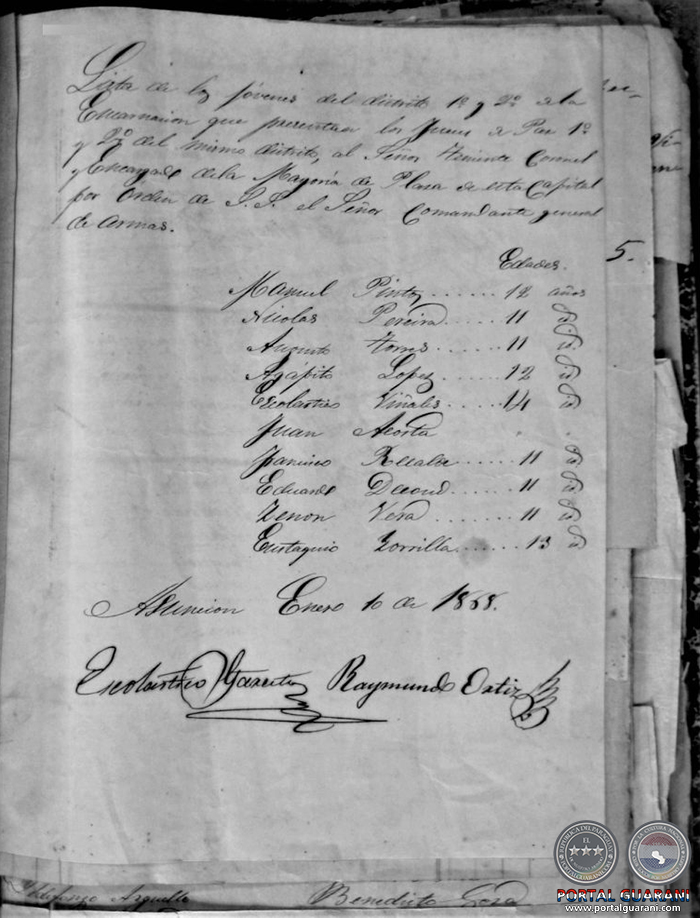 Lista de los jóvenes del distrito 1º y 2º de la
Encarnacion que presentan los Jueces de Paz 1º
y 2º del mismo distrito, al Señor Teniente Coronel
y Encargado de la Mayoría de Plaza de esta Capital
por Orden de S.S. el Señor Comandante general
de Armas.
Edades.
5.
Manuel Pintos ...... 12 años
Nicolas Pereira ...... 11 id
Augusto Torres ...... 11 id
Agápito Lopez ...... 12 id
Escolastico Viñales ...... 14 id
Juan Acosta
Francisco Recalde ...... 11 id
Eduardo Decoud ...... 11 id
Zenon Vera ...... 11 id
Eustaquio Zorrilla ...... 13 id
Asuncion Enero 10 de 1868.
Escolastico Garcete Raymundo Ortiz
Ildefonso Arguello Benedicto
PORTAL GUARANI
www.portalguarani.com